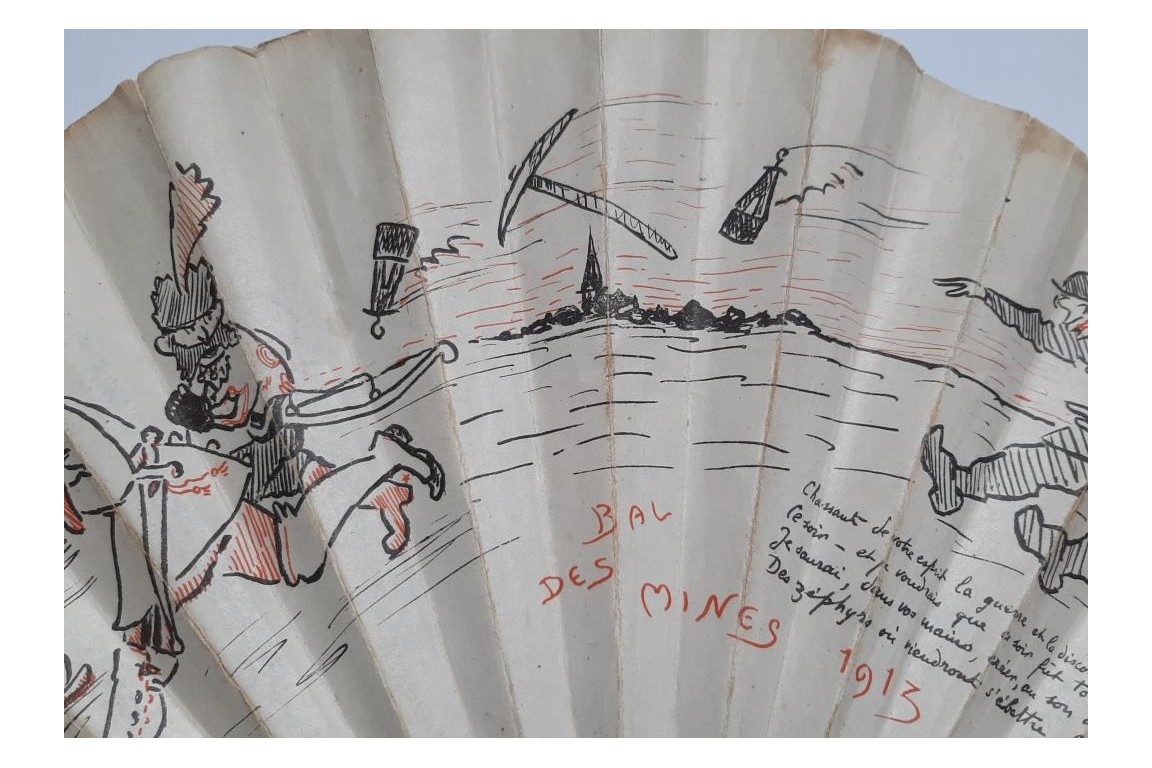 BAL
DES MINES
1913
Chassant de votre esprit la guerre et la disco
Ce soir - et je voudrais que ce soir fût to
Je saurai, dans vos mains, créer, au son d
Des zéphyrs où viendront s'ébattre